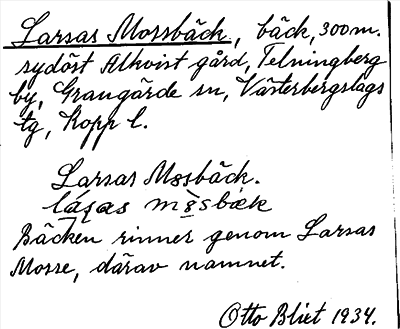 Larsas Mossbäck, bäck, 300 m.
sydöst Alkvist gård, Telningberg
by, Grangärde sn, Västerbergslags
tg, Kopp l.
Larsas Mossbäck.
Bäcken rinner genom Larsas
Mosse, därav namnet.
Otto Blixt 1934.